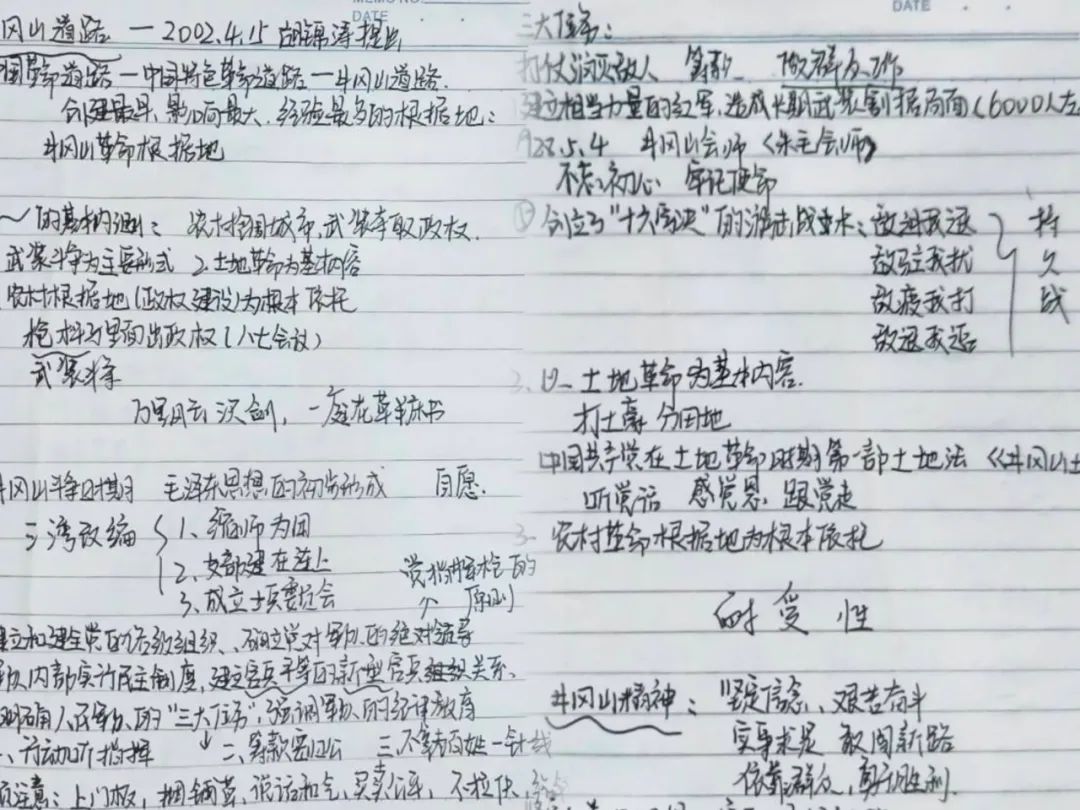 冈山道路 — 2002.4.15 胡锦涛提出
国革命道路 — 中国特色革命道路 — 井冈山道路.
创建最早,影响最大,经验最多的根据地:
井冈山革命根据地
~ 的基本内涵: 农村包围城市,武装夺取政权.
武装斗争为主要形式 2.土地革命为基本内容
农村根据地(政权建设)为根本依托
枪杆子里面出政权(八七会议)
武装斗争
万里风云 三尺剑, 一庭花草半床书
井冈山斗争时期 毛泽东思想的初步形成 自愿.
三湾改编
1、缩师为团
2、支部建在连上
3、成立士兵委员会
党指挥枪的
原则
建立和建全党的各级组织、确立党对军队的绝对领导
队内部实行民主制度,建立官兵平等的新型官兵关系.
明确人民军队的“三大任务”,强调军队的纪律教育
、行动听指挥 二、筹款要归公 三、不拿老百姓一针一线
项注意: 上门板, 捆铺草, 说话和气, 买卖公平, 不拉伕,
MEMO NO.
DATE
DATE
三大任务:
打仗消灭敌人 筹款 做群众工作
建立相当力量的红军,造成长期武装割据局面(6000人左
928.5.4 井冈山会师 (朱毛会师)
不忘初心 牢记使命
创立了“十六字诀”的游击战术: 敌进我退
敌驻我扰
敌疲我打
敌退我追
持久战
以 土地革命为基本内容.
打土豪 分田地
中国共产党在土地革命时期第一部土地法《井冈山土
听党话 感党恩 跟党走
3. 农村革命根据地为根本依托
耐受性
井冈山精神: 坚定信念、艰苦奋斗
实事求是 敢闯新路
依靠群众,勇于胜利.